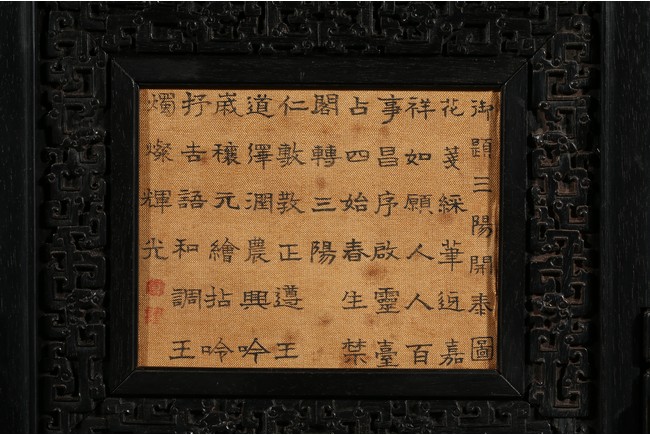 御題三陽開泰圖
花箋綵華迓嘉
祥如願人人百
事昌序啟靈臺
占四始春生禁
閣轉三陽
仁敷敎正遵王
道澤潤農興吟
嵗穰元繪拈吟
抒吉語和調王
燭燦輝光